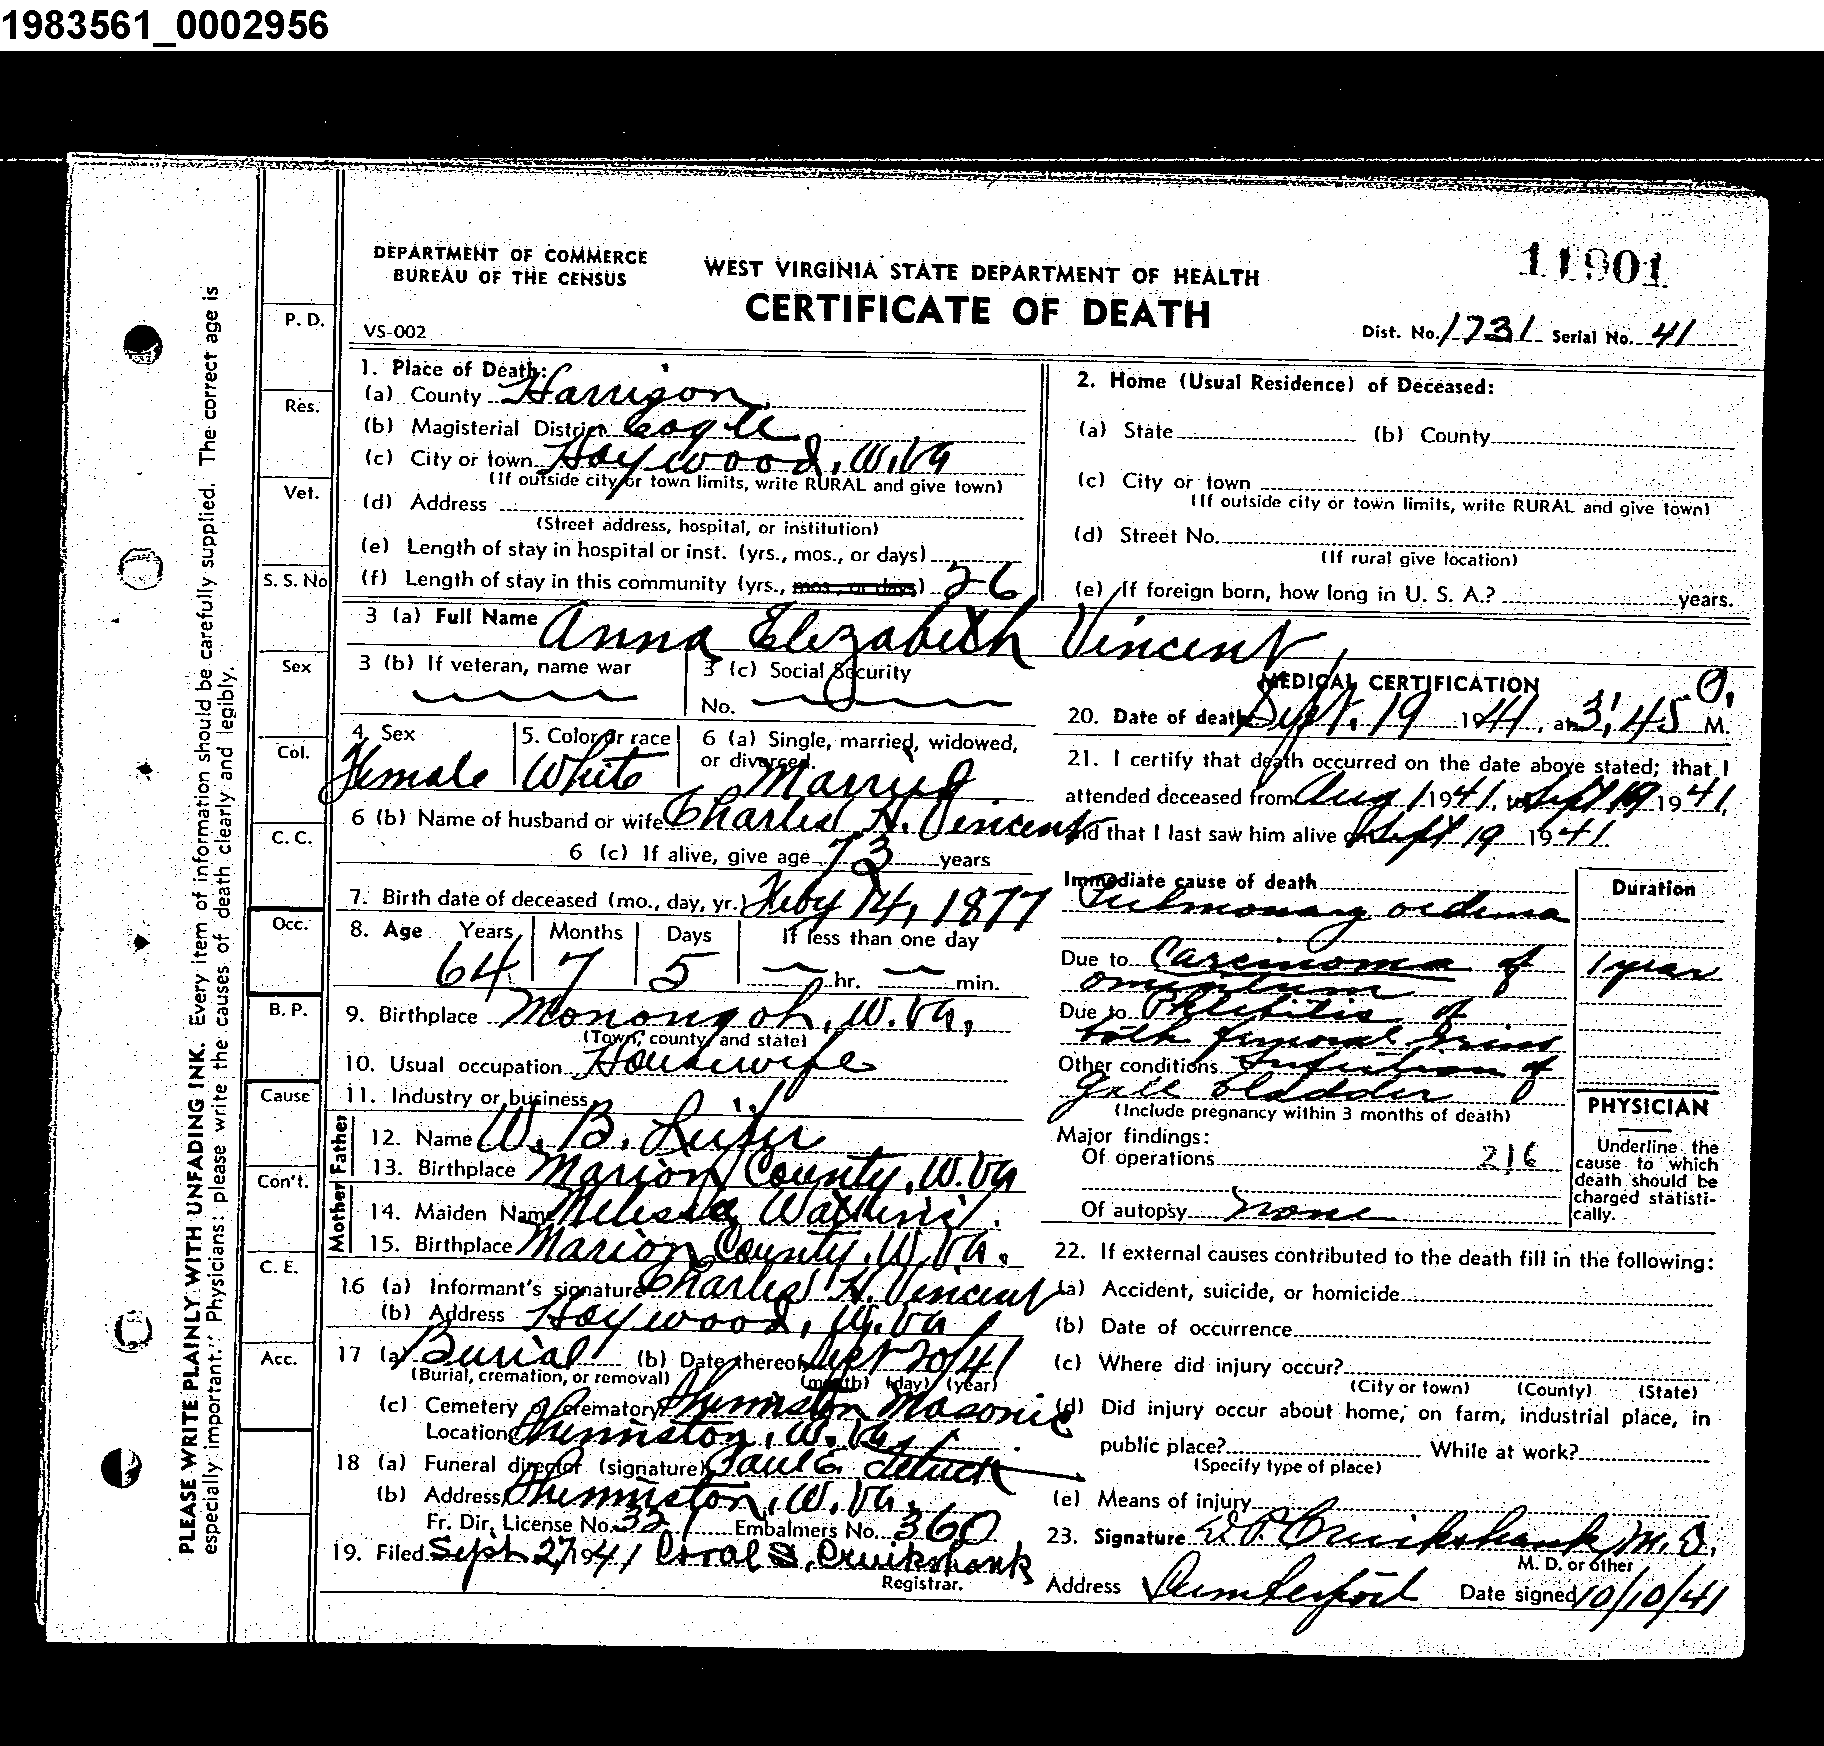 1983561_0002956
DEPARTMENT OF COMMERCE
BUREAU OF THE CENSUS
WEST VIRGINIA STATE DEPARTMENT OF HEALTH
CERTIFICATE OF DEATH
11901
VS-002
Dist. No. 1731 Serial No. 41
PLEASE WRITE PLAINLY WITH UNFADING INK. Every item of information should be carefully supplied. The correct age is
especially important. Physicians: please write the causes of death clearly and legibly.
P. D.
Res.
Vet.
S. S. No
Sex
Col.
C. C.
Occ.
B. P.
Cause
Con't.
C. E.
Acc.
1. Place of Death:
(a) County Harrison
(b) Magisterial District Eagle
(c) City or town Haywood, W. Va
(If outside city or town limits, write RURAL and give town)
(d) Address
(Street address, hospital, or institution)
(e) Length of stay in hospital or inst. (yrs., mos., or days)
(f) Length of stay in this community (yrs., mos., or days) 26
2. Home (Usual Residence) of Deceased:
(a) State (b) County
(c) City or town
(If outside city or town limits, write RURAL and give town)
(d) Street No.
(If rural give location)
(e) If foreign born, how long in U. S. A.? years.
3 (a) Full Name Anna Elizabeth Vincent
3 (b) If veteran, name war
3 (c) Social Security
No.
4. Sex
Female
5. Color or race
White
6 (a) Single, married, widowed,
or divorced. Married
6 (b) Name of husband or wife Charles H. Vincent
6 (c) If alive, give age 73 years
7. Birth date of deceased (mo., day, yr.) Feby 14, 1877
8. Age Years Months Days If less than one day
64 7 5 hr. min.
9. Birthplace Monongah, W. Va,
(Town, county and state)
10. Usual occupation Housewife
11. Industry or business
Father
12. Name W. B.
13. Birthplace Marion County, W. Va
Mother
14. Maiden Name Melissa Watkins.
15. Birthplace Marion County, W. Va.
16 (a) Informant's signature Charles H. Vincent
(b) Address Haywood, W. Va
17 (a) Burial (b) Date thereof Sept 20/41
(Burial, cremation, or removal) (month) (day) (year)
(c) Cemetery or crematory Shinnston Masonic
Location Shinnston, W. Va
18 (a) Funeral director (signature) Paul E.
(b) Address Shinnston, W. Va.
Fr. Dir. License No. 321 Embalmers No. 360
19. Filed Sept 27, 1941 Coral S. Cruikshank
Registrar.
MEDICAL CERTIFICATION
20. Date of death Sept. 19 1941, at 3:45 P. M.
21. I certify that death occurred on the date above stated; that I
attended deceased from Aug 1 1941, to Sept 19 1941.
and that I last saw him alive on Sept 19 1941.
Immediate cause of death Duration
Pulmonary oedema
Due to Carcinoma of 1 year
omentum
Due to Phlebitis of
both femoral veins
Other conditions Infection of
gall bladder
(Include pregnancy within 3 months of death)
Major findings:
Of operations 216
Of autopsy none
PHYSICIAN
Underline the
cause to which
death should be
charged statisti-
cally.
22. If external causes contributed to the death fill in the following:
(a) Accident, suicide, or homicide
(b) Date of occurrence
(c) Where did injury occur?
(City or town) (County) (State)
(d) Did injury occur about home, on farm, industrial place, in
public place? While at work?
(Specify type of place)
(e) Means of injury
23. Signature D. P. Cruikshank, M. D.
M. D. or other
Address Lumberport Date signed 10/10/41